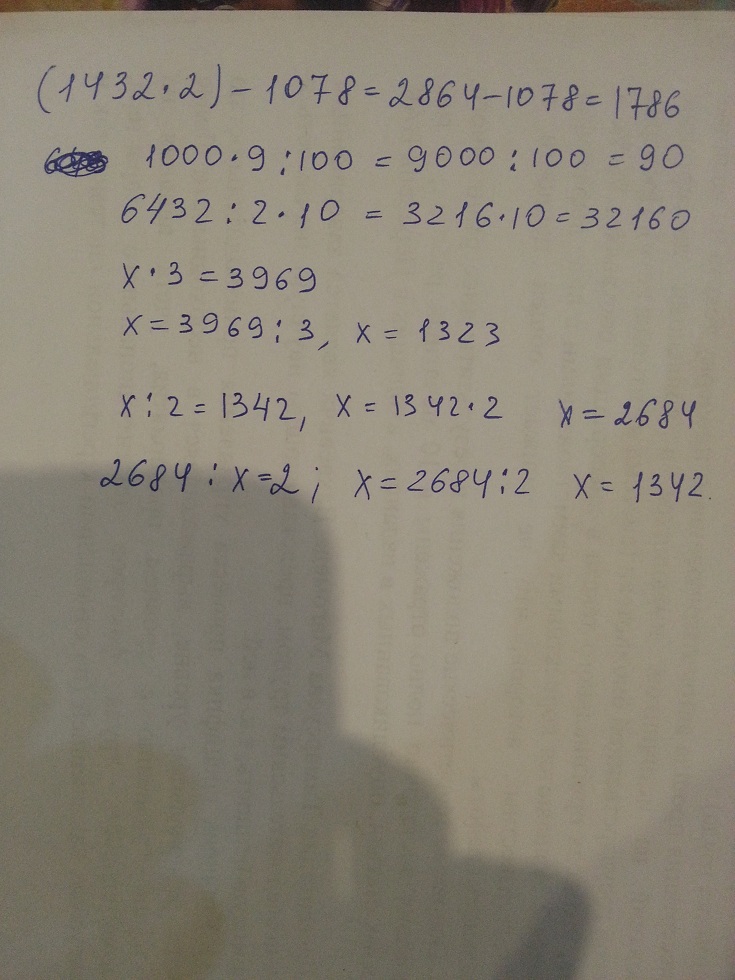 (1432·2)-1078=2864-1078=1786
1000·9:100=9000:100=90
6432:2·10=3216·10=32160
x·3=3969
x=3969:3, x=1323
x:2=1342, x=1342·2 x=2684
2684:x=2; x=2684:2 x=1342.